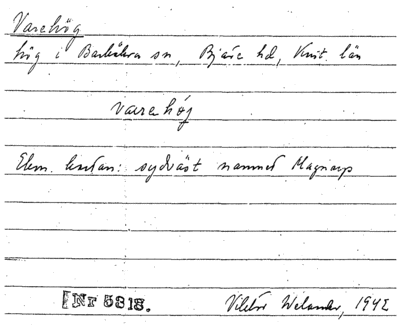 Varehög
hög i Barkåkra sn, Bjäre hd, Krist. län
varehöj
Ekon. kartan: sydväst namnet Magnarp
[Nr 5818.
Viktor Welander, 1942